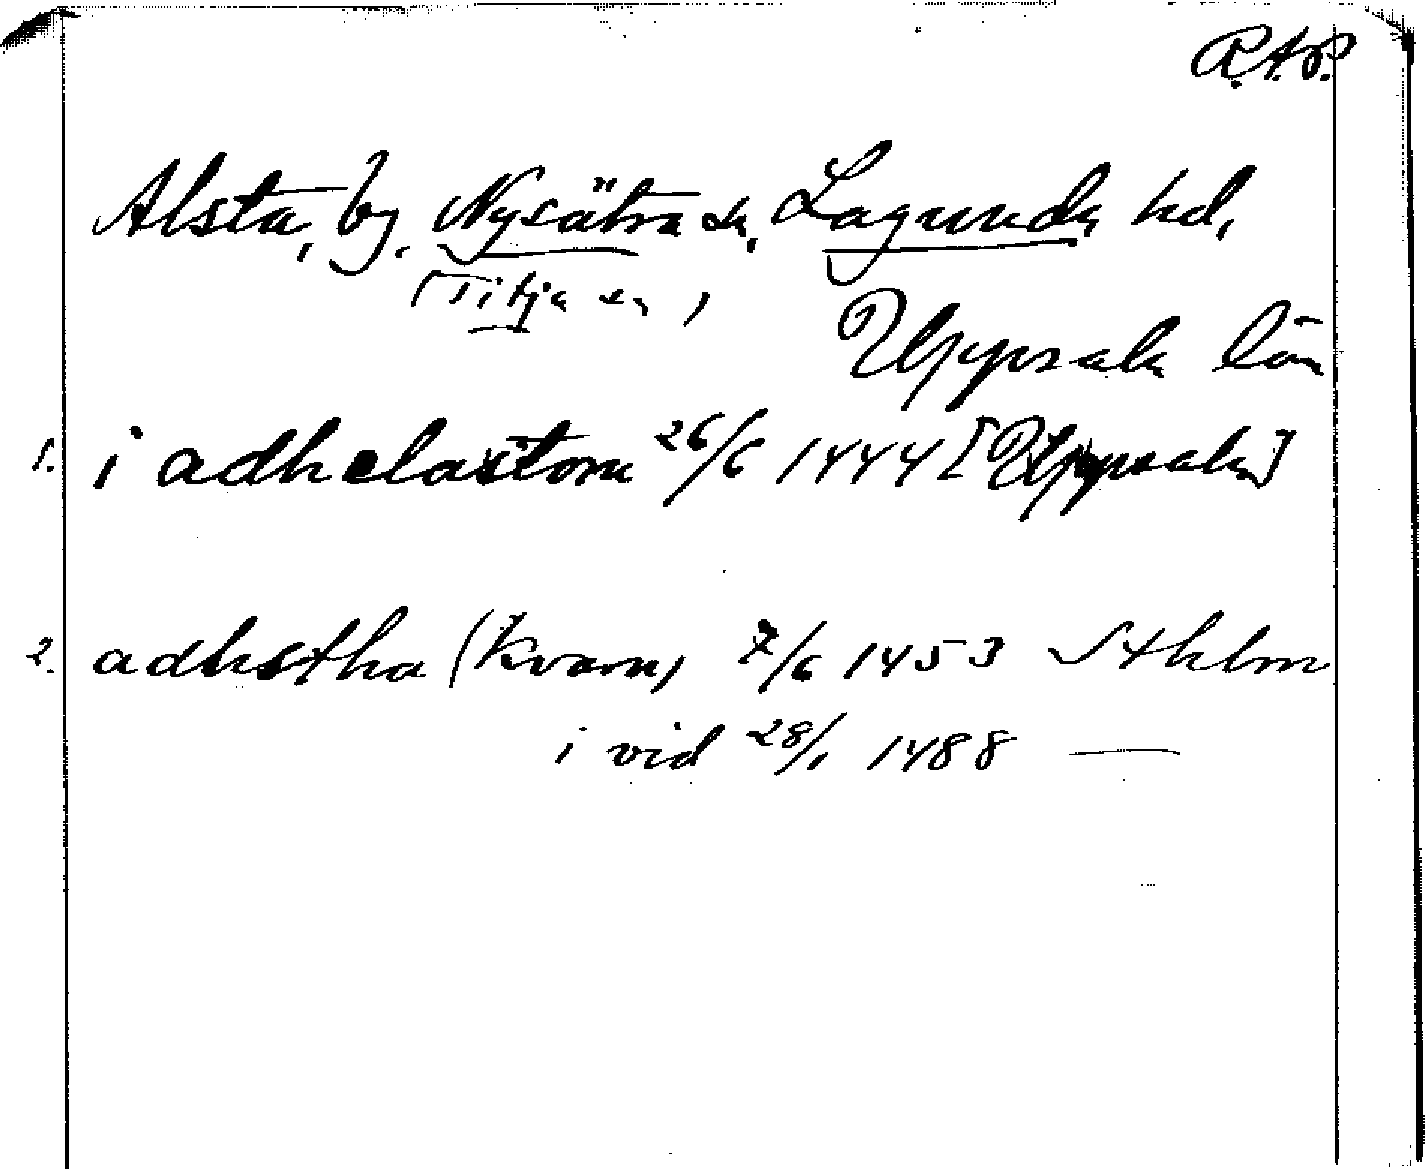 R.A.P.
Alsta, by, Nysätra sn, Lagunda hd,
(Tibja sn)
Uppsala län
1. i adhelastom 26/6 1444 [Uppsala]
2. adhstha (Kvarn) 7/6 1453 Sthlm
i vid 28/1 1488 —